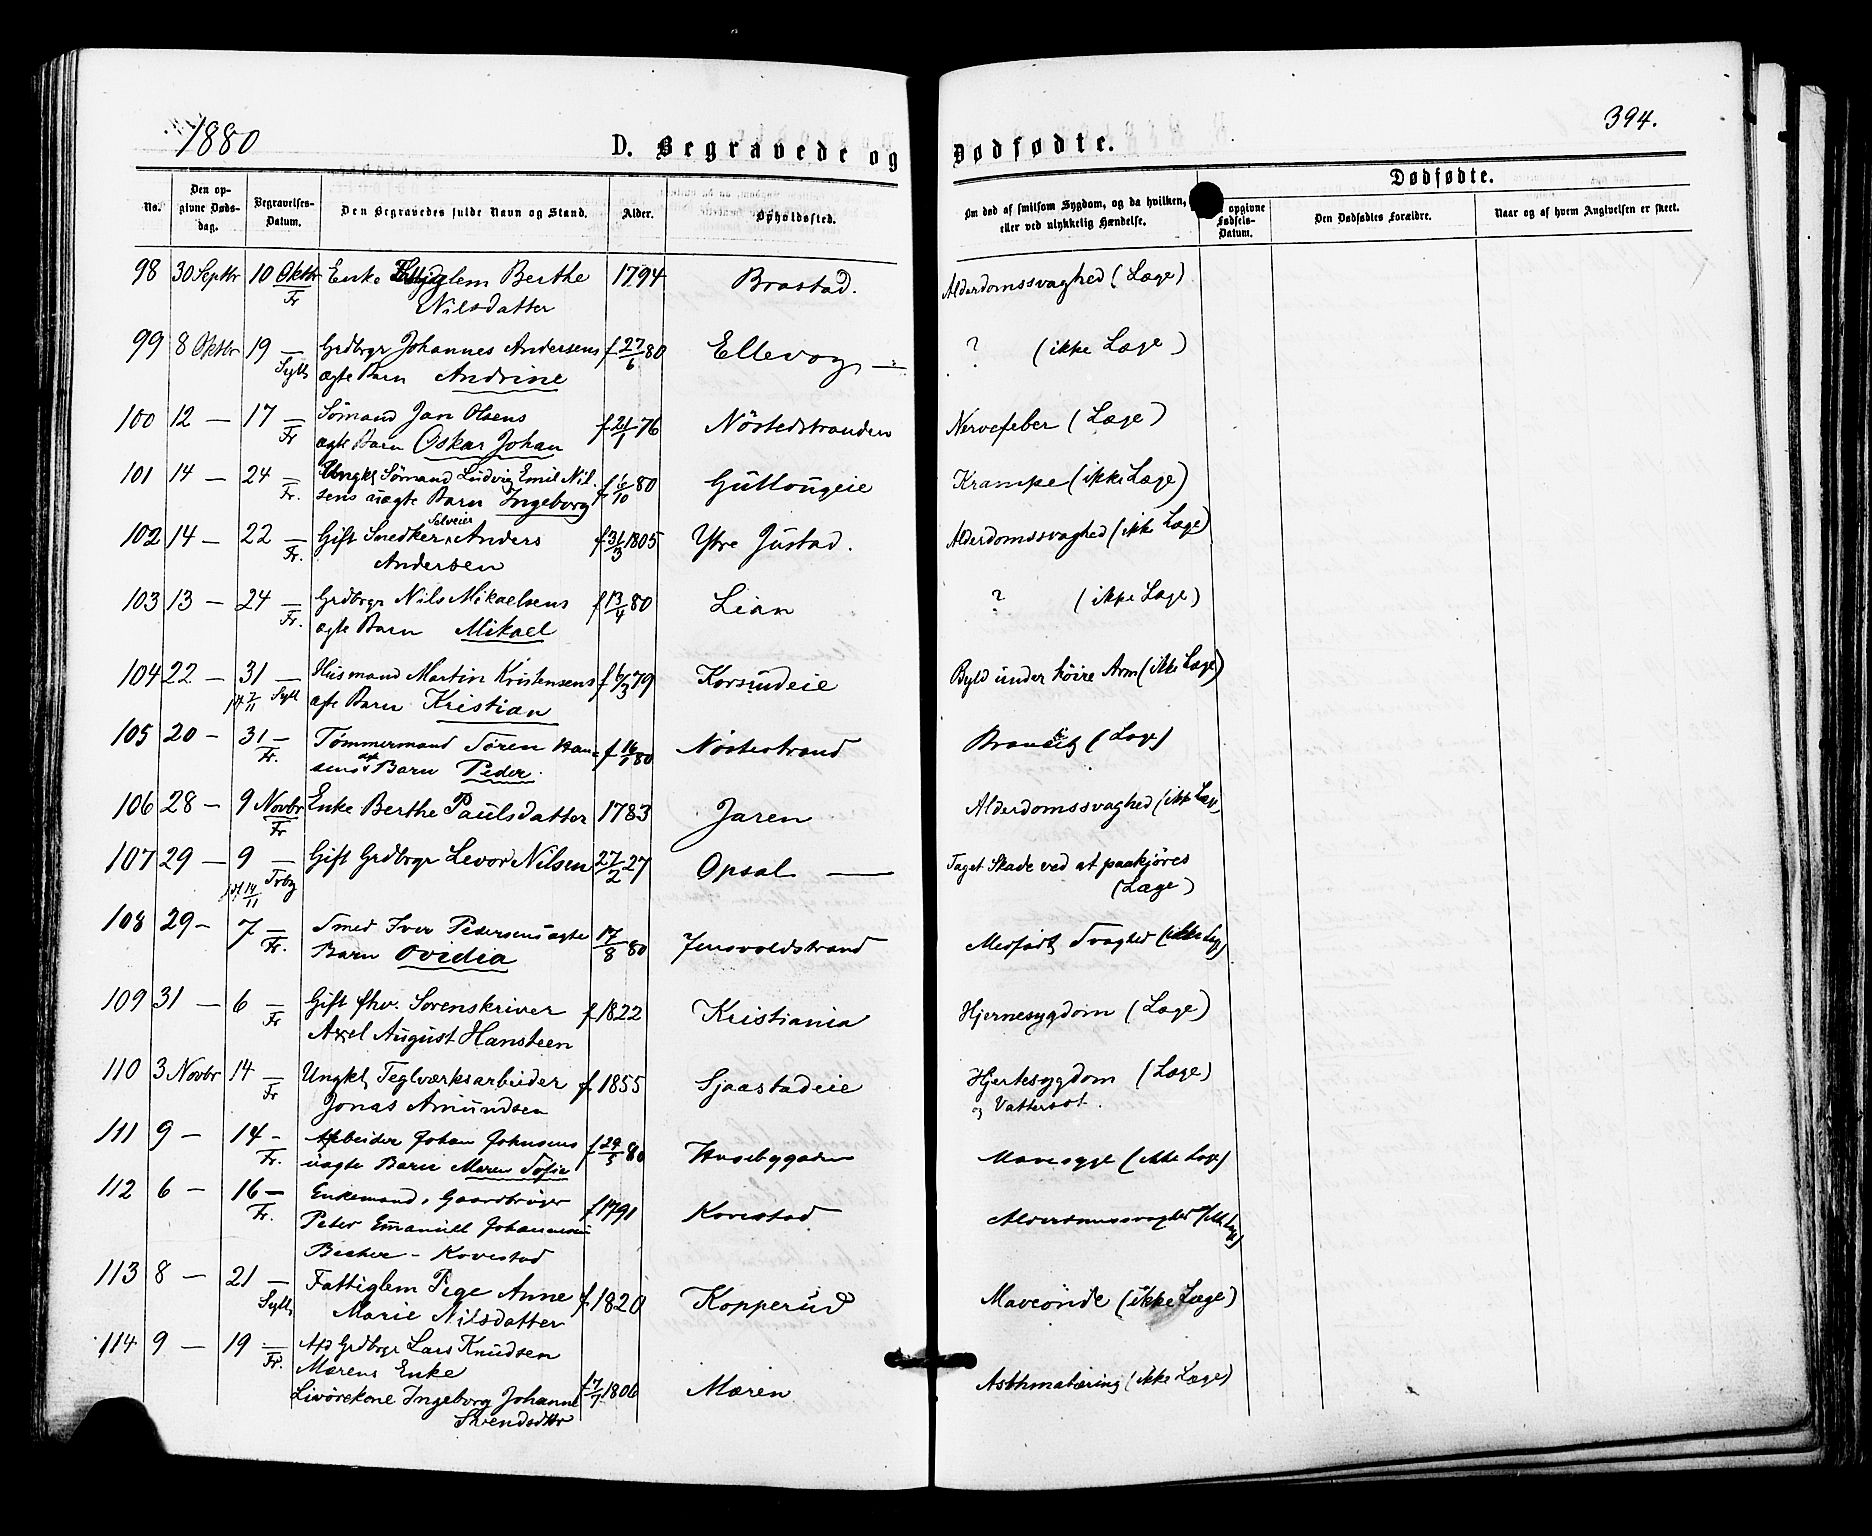 1880
D. Begravede og Dødfødte.
394.
No.
Den opgivne Dødsdag.
Begravelses-Datum.
Den Begravedes fulde Navn og Stand.
Alder.
Opholdssted.
Om død af smitsom Sygdom, og da hvilken, eller ved ulykkelig Hændelse.
Dødfødte.
opgivne Fødsels-Datum.
Den Dødfødtes Forældre.
Naar og af hvem Angivelsen er skeet.
98 30 Septbr 10 Oktbr Enke Berthe 1794 Brastad. Alderdomssvaghed (Læge)
Fr Nilsdatter
99 8 Oktbr 19 — Grdbrgr Johannes Andersens f 27/6 80 Ellevog — ? (ikke Læge)
Syll ægte Barn Andrine
100 12 — 17 — Sömand Jan Olsens f 21/1 76 Nöstedstranden Nervefeber (Læge)
Fr ægte Barn Oskar Johan
101 14 — 24 — Ungkl Sömand Ludvig Emil Nil- f 6/10 80 Guttougeie Krampe (ikke Læge)
Fr. sens uægte Barn Ingeborg
102 14 — 22 — Gift Snedker Selveier Anders f 31/3 1805 Ytre Justad. Alderdomssvaghed (ikke Læge)
Fr. Andersen
103 13 — 24 — Grdbrgr Nils Mikaelsens f 13/4 80 Lian ? (ikke Læge)
Fr. ægte Barn Mikael
104 22 — 31 — Husmand Martin Kristensens f 6/3 79 Korsudeie Byld under höire Arm (ikke Læge)
Syll Barn Kristian
105 20 - 31 — Tömmermand Sören Han- f 16/1 80 Nöstestrand (Læge)
Fr. sens Barn Peder.
106 28 — 9 Novbr Enke Berthe Paulsdatter 1783 Jaren Alderdomssvaghed (ikke Læge
Fr
107 29 — 9 — Gift Grdbrgr Levor Nilsen 27/2 27 Opsal — Taget Skade ved at paakjöres
(Læge)
108 29 - 7 — Smed Iver Pedersens uægte 17/8 80 Jensvoldstrand Medfödt Svaghed (ikke Lge)
Fr. Barn Ovidia
109 31 — 6 — Gift fhv. Sorenskriver f 1822 Kristiania Hjernesygdom (Læge)
Fr Axel August Hansteen
110 3 Novbr 14 — Ungkl Teglværksarbeider f 1855 Sjaastadeie Hjertesygdom (Læge)
Fr Jonas Amundsen og Vattersot.
111 9 — 14 - Arbeider Johan Johnsens f 29/5 80 Husebygaden Mavesyge (ikke Læge)
Fr. uægte Barn Maren Sofie
112 6 — 16 — Enkemand, Gaardbruger f 1791 Kovestad. Alderdomssvaghed (ikke Lge)
Fr. Peter Emanuell Johannesen
Becher - Kovestad
113 8 — 21 — Fattiglem Pige Anne f 1820 Kopperud Maveonde (ikke Læge)
Syll Marie Nilsdatter
114 9 — 19 — Afd Grdbrgr Lars Knudsen
Fr. Mærens Enke
Livörekone Ingeborg Johanne f 17/7 1806 Mæren Asthmatæring (ikke Læge)
Svendsdttr